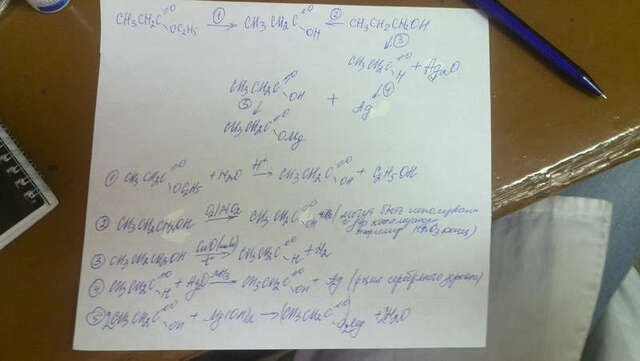 CH3CH2C=O OC2H5 ① → CH3CH2C=O OH ② ← CH3CH2CH2OH
↓ ③
CH3CH2C=O H + Ag2O
CH3CH2C=O OH + Ag ↓ ④
⑤ ↓
CH3CH2C=O OMg
① CH3CH2C=O OC2H5 + H2O H+ → CH3CH2C=O OH + C2H5OH
② CH3CH2CH2OH → CH3CH2C=O OH (может быть
HNO3 конц)
③ CH3CH2CH2OH CuO t → CH3CH2C=O H + H2
④ CH3CH2C=O H + Ag2O NH3 → CH3CH2C=O OH + Ag (р-ция серебряного зеркала)
⑤ 2CH3CH2C=O OH + Mg(OH)2 → (CH3CH2C=O O)2Mg + H2O